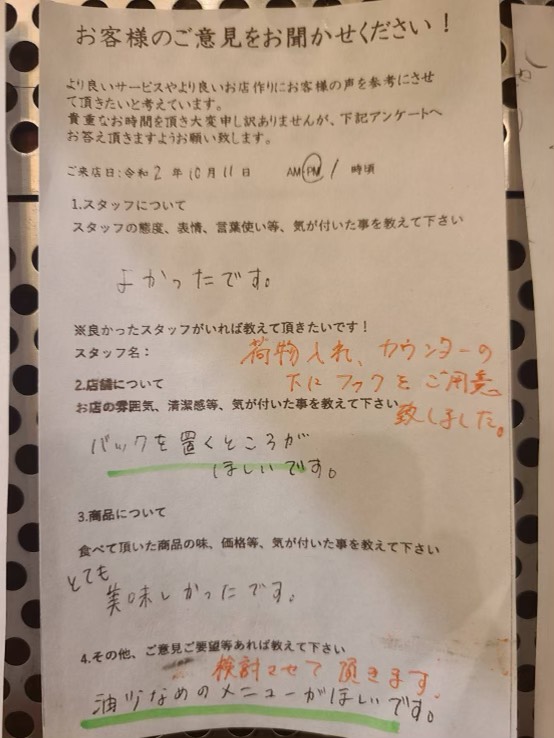 お客様のご意見をお聞かせください！
より良いサービスやより良いお店作りにお客様の声を参考にさせ
て頂きたいと考えています。
貴重なお時間を頂き大変申し訳ありませんが、下記アンケートへ
お答え頂きますようお願い致します。
ご来店日:令和 2 年 10 月 11 日 AM PM 1 時頃
1.スタッフについて
スタッフの態度、表情、言葉使い等、気が付いた事を教えて下さい
よかったです。
※良かったスタッフがいれば教えて頂きたいです！
スタッフ名：
荷物入れ、カウンターの
下にフックをご用意
致しました。
2.店舗について
お店の雰囲気、清潔感等、気が付いた事を教えて下さい
バックを置くところが
ほしいです。
3.商品について
食べて頂いた商品の味、価格等、気が付いた事を教えて下さい
とても
美味しかったです。
4.その他、ご意見ご要望等あれば教えて下さい
検討させて頂きます。
油少なめのメニューがほしいです。